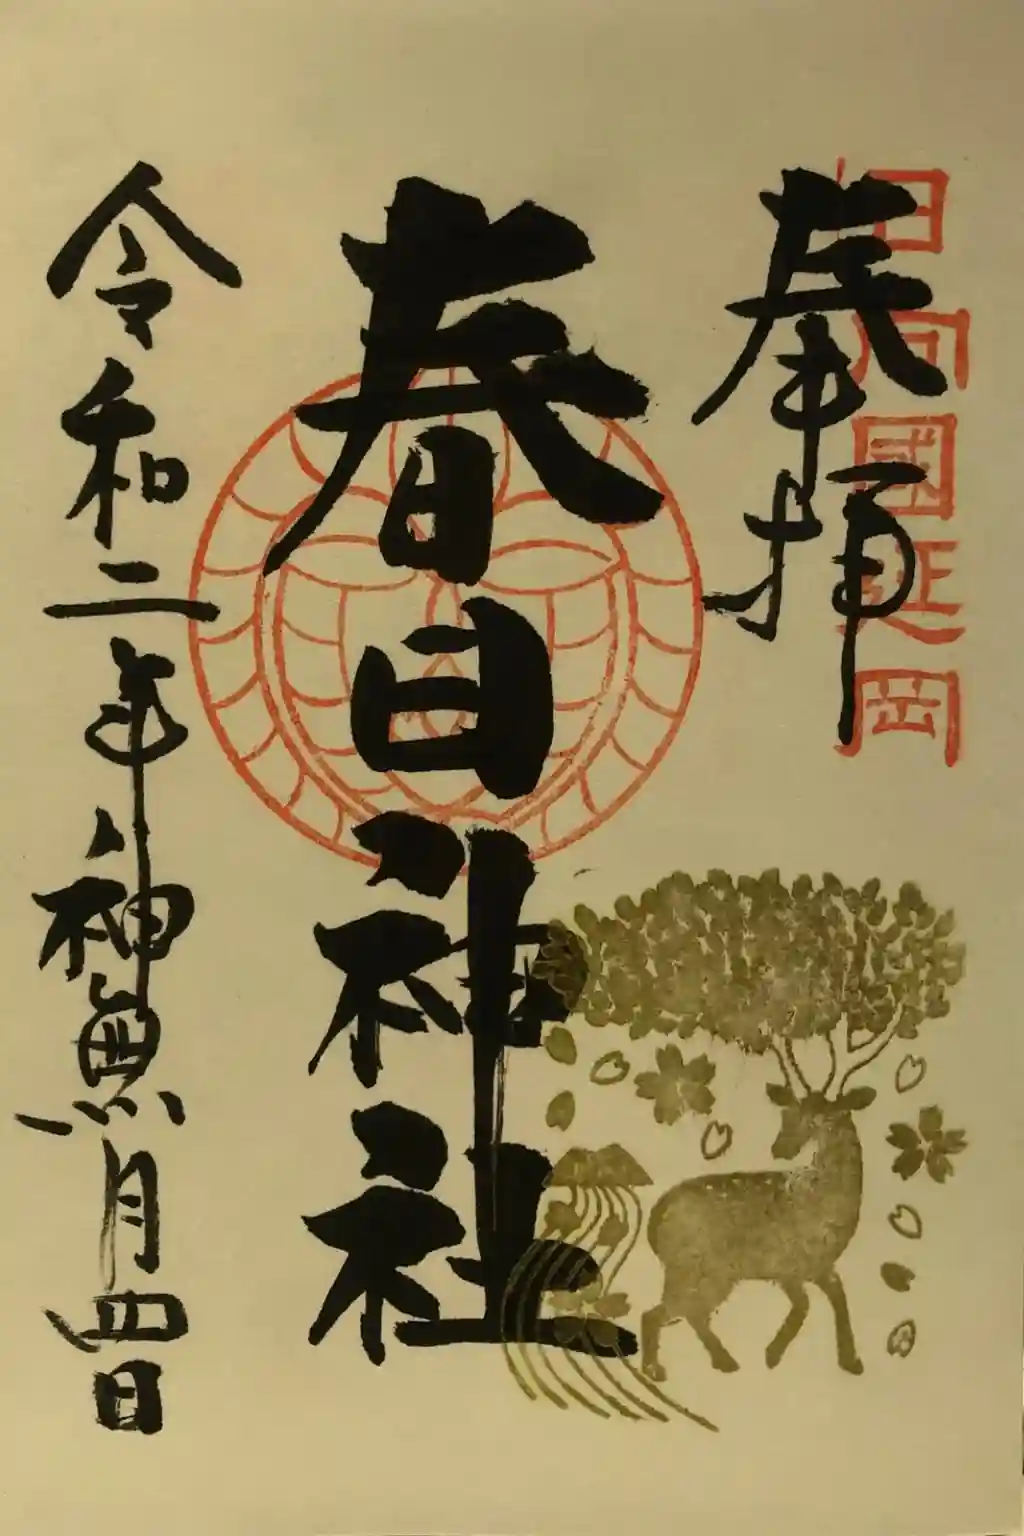 日向國延岡
奉拝
春日神社
令和二年神無月四日